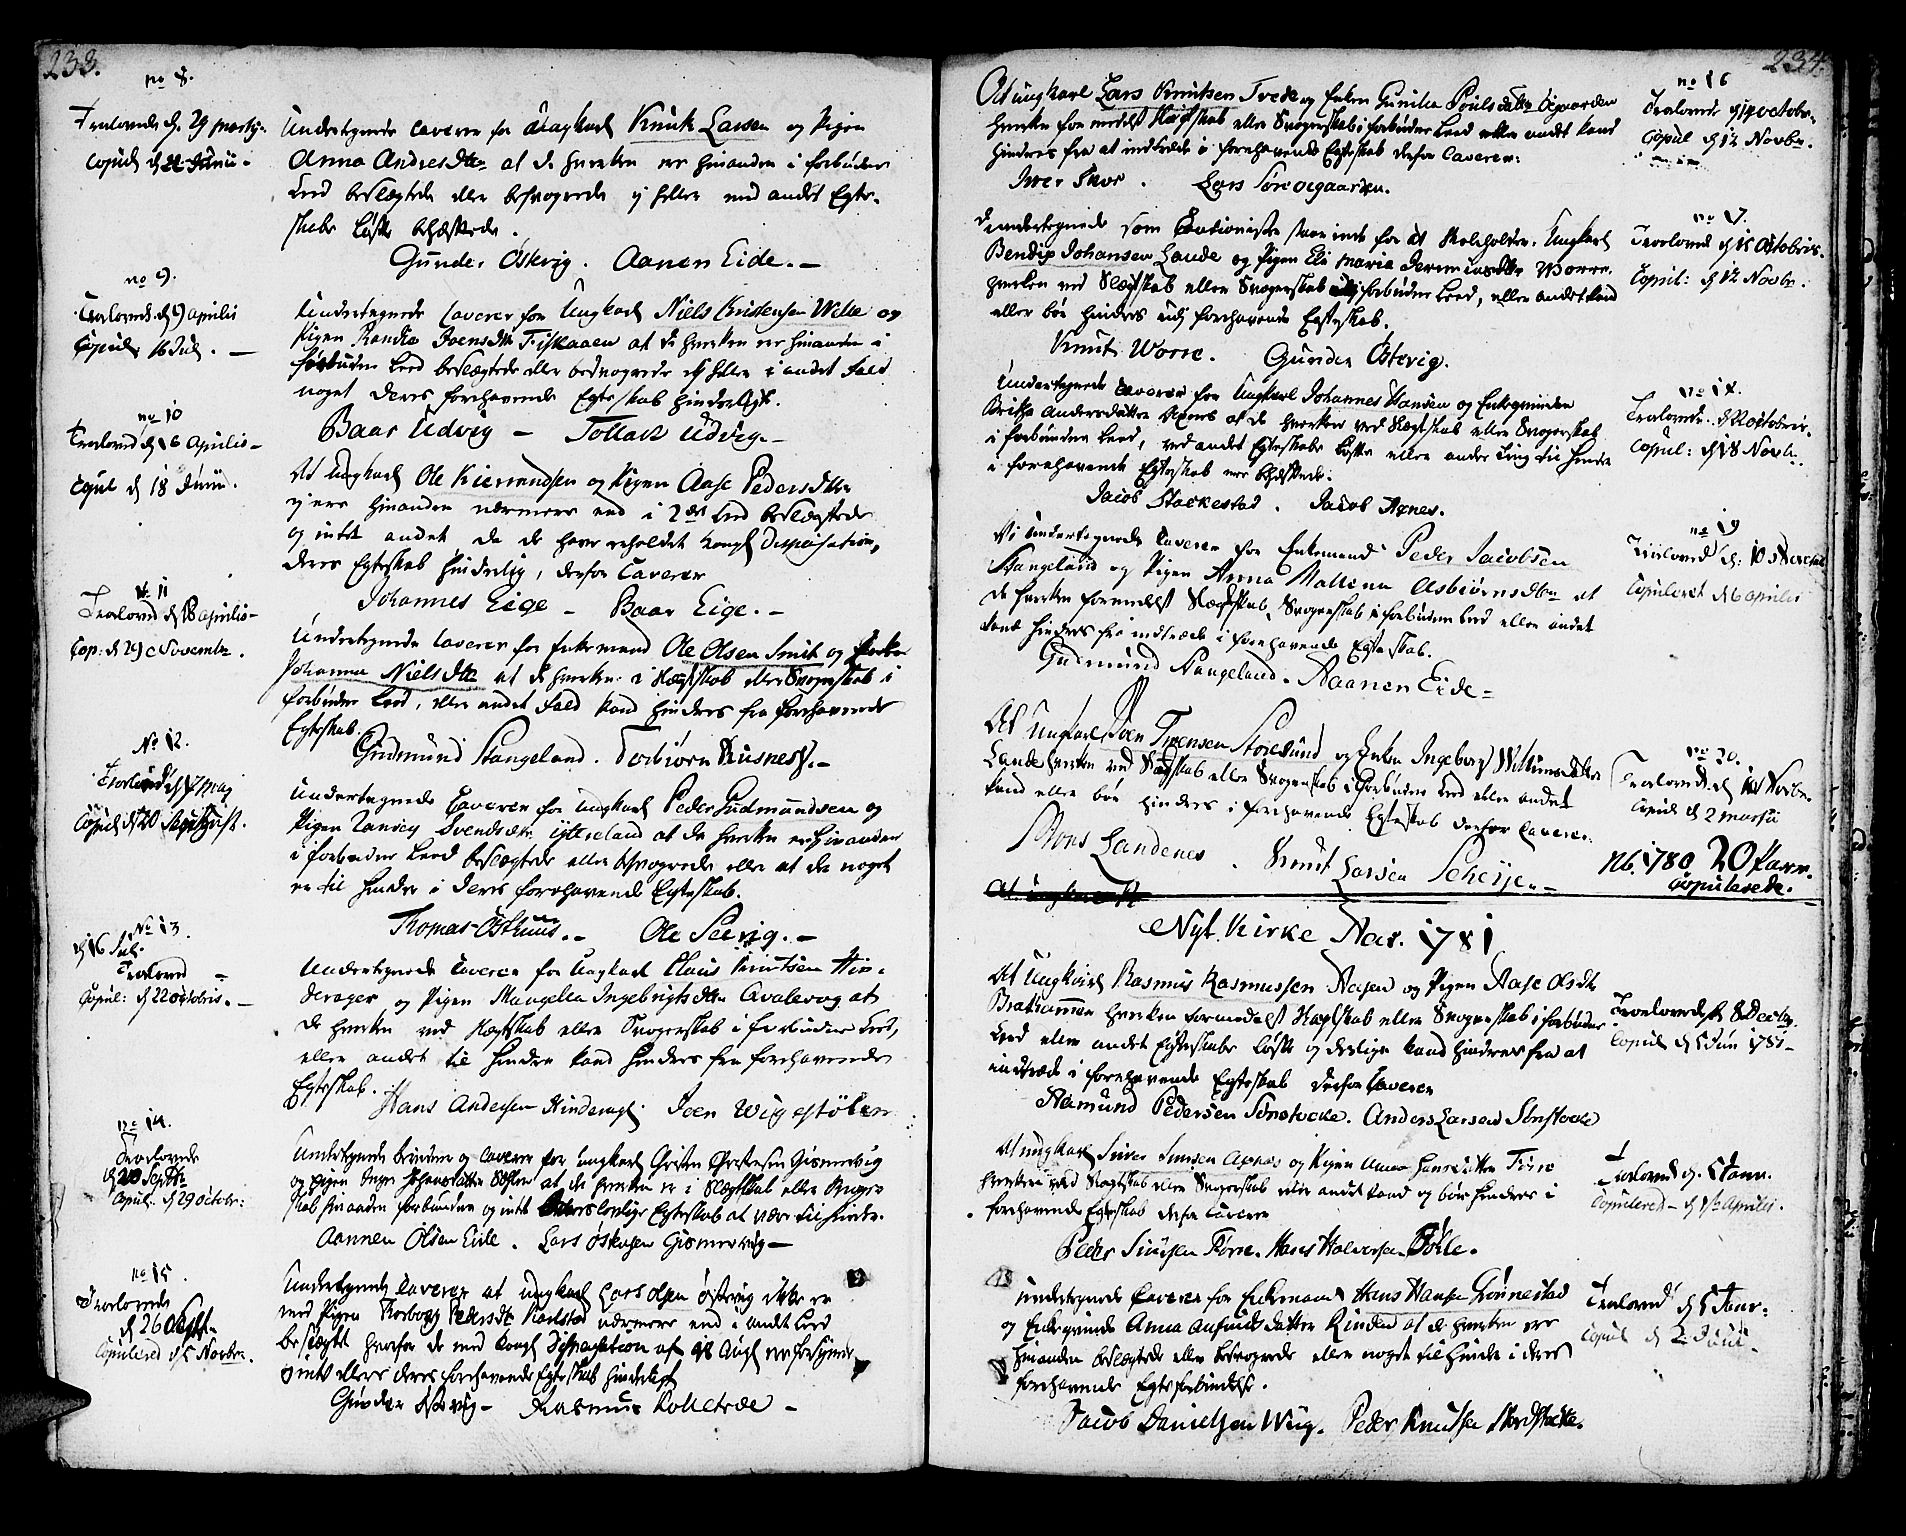 233.
no 8.
Trolovede d. 29 martij
Copul d 22 Junii
Undertegnede Caverer for Ungkarl Knut Larsen og Pigen
Anna Andresdttr at de hverken er hinanden i forbuden
Leed beslægtede eller besvogrede ej heller med andet Egte-
skabs Løfte behæftede.
Gunder Østevig. Aanen Eide.
no 9.
Trolovede d 9 aprilis
Copul 16 Jul.
Undertegnede Caverer for Ungkarl Niels Kristensen og
Pigen Joensdttr at de hverken ere hinanden i
forbuden Leed beslægtede eller besvogrede ej heller i andet Fald
noget deres forehavende Egteskab hinderligt.
Baar Udvig Tollak Udvig.
no 10
Trolovede d 16 Aprilis
Copul d 18 Junii.
At Ungkarl Ole og Pigen Aase Pedersdttr
ej ere hinanden nærmere end i 2det Leed beslægtede
og intet andet da de have erholdet kongl Dispensation,
deres Egteskab hinderlig, derfor Caverer
Johannes Eige Baar Eige.
No 11
Trolovede d 18 Aprilis
Cop: d 29 November.
Undertegnede Caverer for Enkemand Ole Olsen Smit og Enken
Johanna Nielsdttr at de hverken i Slægtskab eller Svogerskab i
forbuden Leed, eller andet Fald kand hindres fra forehavende
Egteskab.
Gudmund Stangeland. Torbiørn Husnes.
No 12.
Trolovede d 7 Maj
Copul d 20 August.
Undertegnede Caverer for Ungkarl Peder Gudmundsen og
Pigen Svendsdttr Ytreland at de hverken er hinanden
i forbuden Leed beslægtede eller besvogrede eller at de noget
er til hinder i deres forehavende Egteskab.
Thomas Østhuus. Ole Seevig.
No 13
d 16 Jul.
Trolovede
Copul: d 22 octobris.
Undertegnede Caverer for Ungkarl Claus Knutsen Hin-
derager og Pigen Mangella Ingebrigtsdttr Qvalevog at
de hverken ved Slægtskab eller Svogerskab i forbuden Leed,
eller andet til hinder kand hindres fra forehavende
Egteskab.
Hans Andersen Joen Wigestølen
no 14.
Trolovede
d 20 Septbr
Copul. d 29 octobr:
Undertegnede og Caverer for Ungkarl Gismervig
og Pigen Inger Johansdatter at de hverken er i Slægtskab eller Svoger-
skab hinanden forbundne og intet Egteskab at være til hinder.
Aannen Olsen Eide. Lars Gismervig
no 15.
Trolovede
d 26 Sept.
Copulered d 5 Novbr.
Undertegnede Caverer at Ungkarl Lars Olsen Østevig ikke er
med Pigen Pedersdttr nærmere end i andet Leed
beslægtet hvorfor de med kongl Dispensation af 18 Aug er forsynede
og intet ellers deres forehavende Egteskab hinderligt
Gunder Østevig Rasmus
234.
At Ungkarl Lars Knutsen Tvede og Enken Gunilla Poulsdatter Øigaarden
hverken formedelst Slægtskab eller Svogerskab i forbuden Leed eller andet kand
hindres fra at indtræde i forehavende Egteskab derfor Caverer:
Iver Lars
no 16
Trolovede d 19 octobr
Copul d 12 Novbr.
Undertegnede som Cautionister staar inde for at Skoleholder, Ungkarl
Bendix Johansen Lande og Pigen Eli Maria Worre.
hverken ved Slægtskab eller Svogerskab i forbuden Leed, eller andet kand
eller bør hindres udj forehavende Egteskab.
Knut Worre. Gunder Østevig.
no 17.
Trolovede d 15 Octobris.
Copul: d 12 Novbr.
Undertegnede Caverer for Ungkarl Johannes Hansen og Enkeqvinden
Britha Andersdatter at de hverken ved Slægtskab eller Svogerskab
i forbuden Leed, ved andet Egteskabs Løfte eller anden Ting til hinder
i forehavende Egteskab ere behæftede.
Jacob Stackestad. Jacob Apnes.
no 18.
Trolovede d 22 octobris.
Copul: d 18 Novbr.
Vi Undertegnede Caverer for Enkemand Peder Jacobsen
Stangeland og Pigen Anna Mallena Asbiørnsdttr at
de hverken formedelst Slægtskab, Svogerskab i forbuden Leed eller andet
kand hindres fra indtræde i forehavende Egteskab.
Gudmund Stangeland. Aanen Eide
no 19
Trolovede d: 10
Copuleret d 6 aprilis
At Ungkarl Joen Storesund og Enken Ingeborg Willumsdatter
Lande hverken ved Slægtskab eller Svogerskab i forbuden Leed eller andet
kand eller bør hindres i forehavende Egteskab derfor Caverer.
Mons Landenes. Knut Larsen
no 20.
Trolovede d Novbr.
Copul d 2 martii
Nb. 1780 20 Parr.
Copulerede.
Nyt Kirke Aar. 1781
At Ungkarl Rasmus Rasmussen og Pigen Aase Olsdtr
hverken formedelst Slægtskab eller Svogerskab i forbuden
Leed eller andet Egteskabs Løfte og deslige kand hindres fra at
indtræde i forehavende Egteskab derfor Caverer
Aamund Pedersen Sønstøcke. Anders Larsen Sønstøcke
Trolovede d 8 Decbr.
Copul d 5 Jun 1781
At Ungkarl Siver Apnes og Pigen Anna Hansdatter
hverken ved Slægtskab eller Svogerskab eller andet kand og bør hindres i
forehavende Egteskab derfor Caverer
Peder Hans Halversen
1
Trolovede d. 5 Janr.
Copulered d Aprilis.
Undertegnede Caverer for Enkemand Hans Hansen Grønnestad
og Enkeqvinde Anna Amundsdatter at de hverken ere
hinanden beslægtede eller besvogrede eller noget til hinder i deres
forehavende Egteforbindelse.
Jacob Danielsen Wiig. Peder Knutsen Nordstøcke.
Trolovede d 5 Janr.
Copul d 2 Junii.